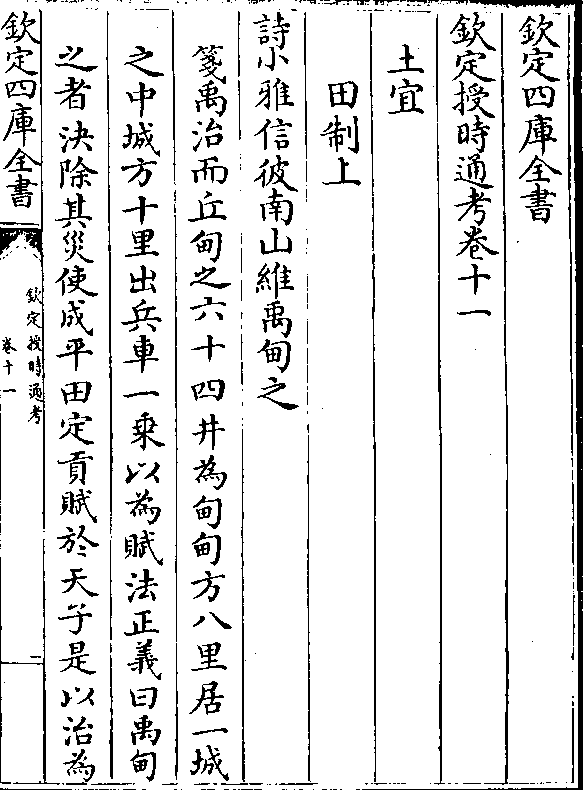 欽定四庫全書
欽定授時通考卷十一
土宜
田制上
詩小雅信彼南山維禹甸之
箋禹治而丘甸之六十四井為甸甸方八里居一城
之中城方十里出兵車一乘以為賦法正義曰禹甸
之者決除其災使成平田定貢賦於天子是以治為
欽定四庫全書
欽定授時通考
卷十一
一